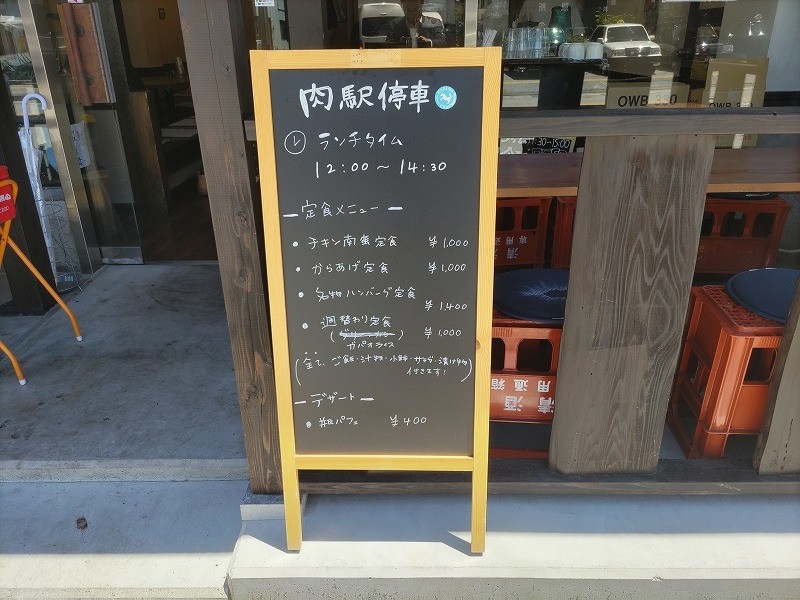 肉駅停車
ランチタイム
12:00～14:30
ー定食メニューー
・チキン南蛮定食 ¥1,000
・からあげ定食 ¥1,000
・名物ハンバーグ定食 ¥1,400
・週替わり定食 ¥1,000
ガパオライス
(全て、ご飯・汁物・小鉢・サラダ・漬け物
付きます!)
ーデザートー
・パフェ ¥400
OWB
清酒
専用
清酒
専用通箱